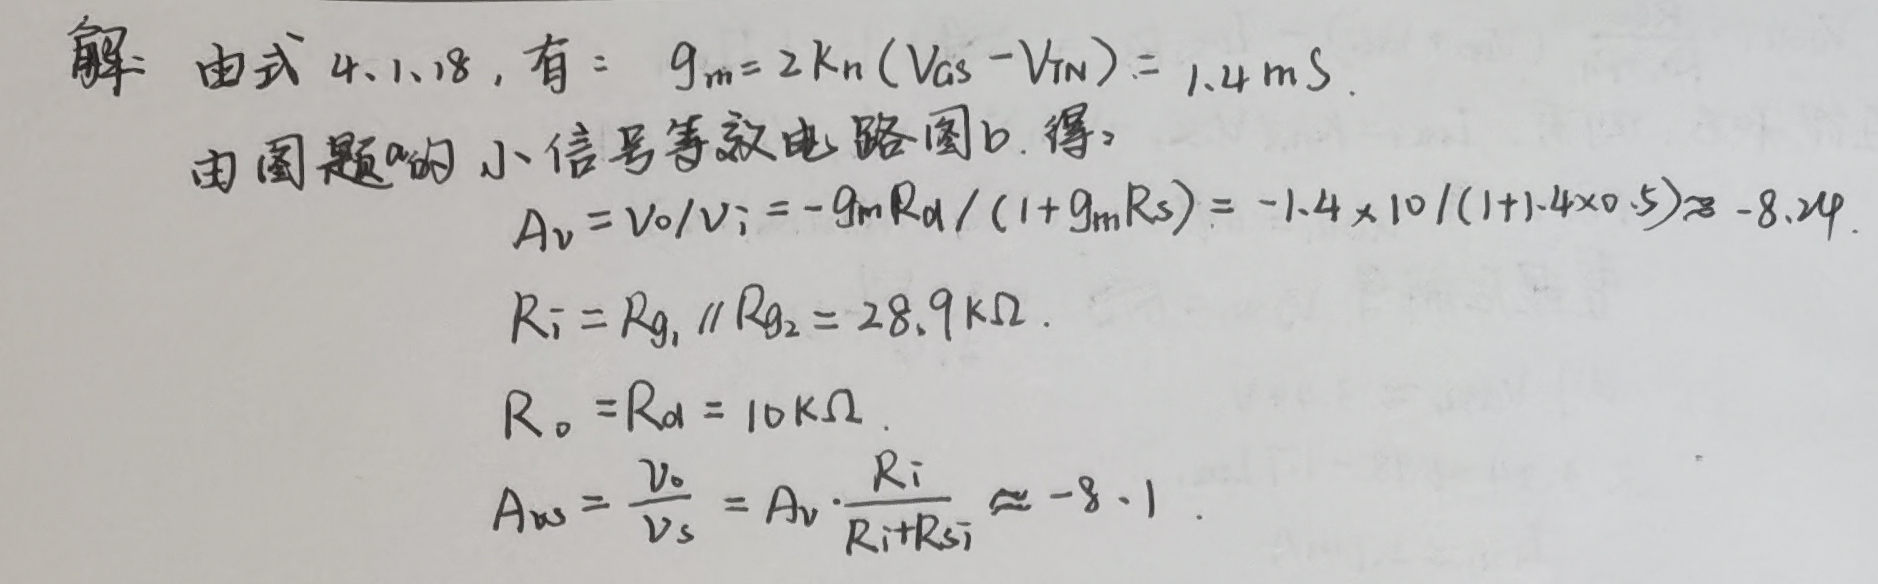 解: 由式 4.1.18, 有: gm = 2Kn(VGS - VTN) = 1.4mS.
由图题a的小信号等效电路图b. 得:
Av = vo/vi = -gmRd/(1+gmRs) = -1.4×10/(1+1.4×0.5) ≈ -8.24.
Ri = Rg1 // Rg2 = 28.9KΩ.
Ro = Rd = 10KΩ.
Avs = vo/vs = Av · Ri/(Ri+Rsi) ≈ -8.1.